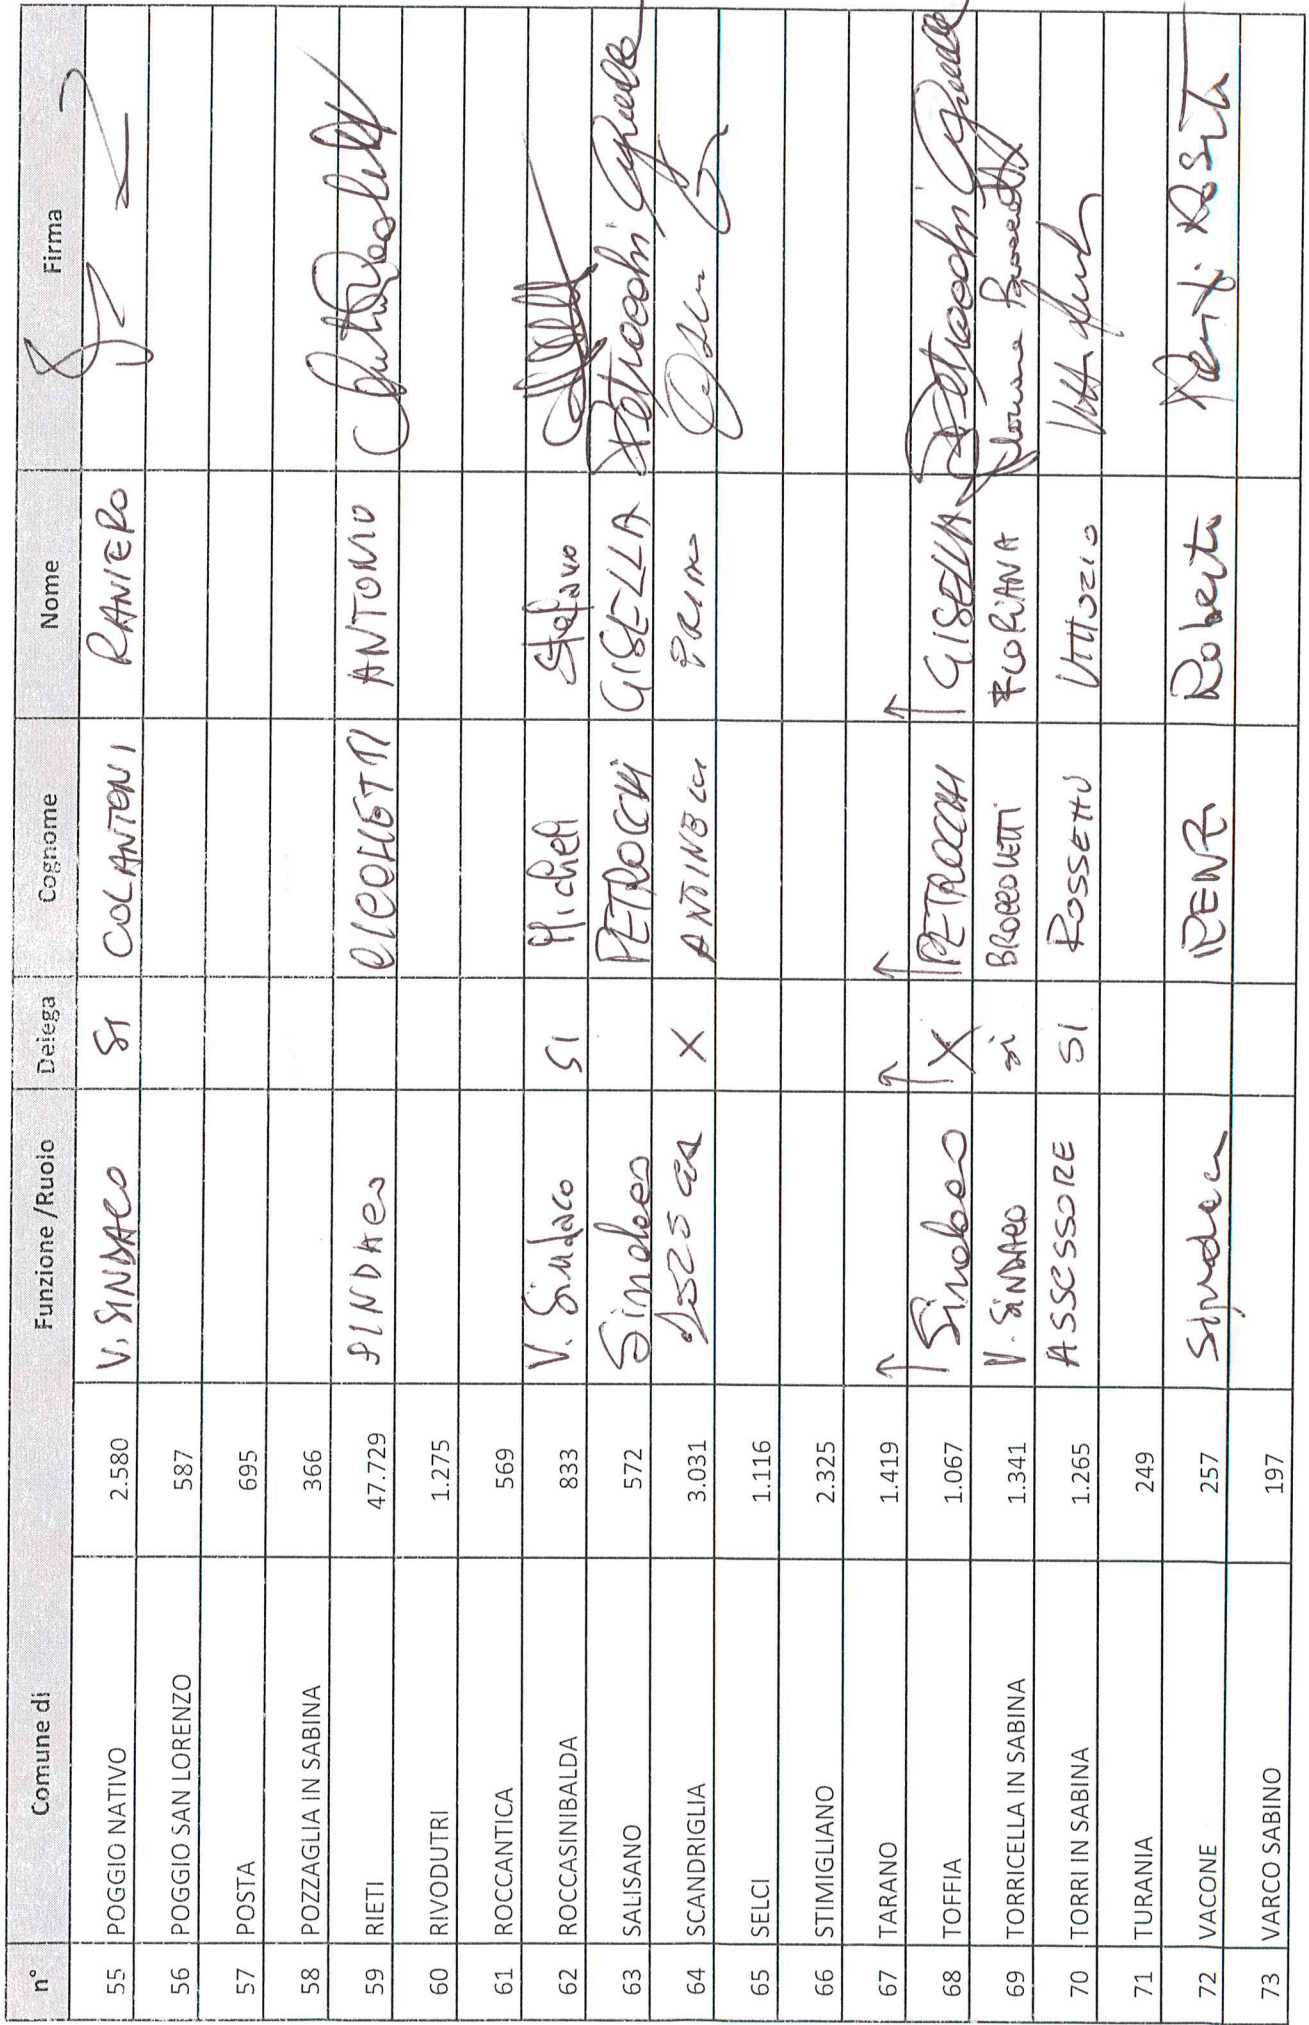 n° Comune di Funzione /Ruolo Delega Cognome Nome Firma
55 POGGIO NATIVO 2.580 V. SINDACO SI COLANTONI RANIERO
56 POGGIO SAN LORENZO 587
57 POSTA 695
58 POZZAGLIA IN SABINA 366
59 RIETI 47.729 SINDACO CICCHETTI ANTONIO
60 RIVODUTRI 1.275
61 ROCCANTICA 569
62 ROCCASINIBALDA 833 V. Sindaco SI Micheli Stefano
63 SALISANO 572 Sindaco PETROCCHI GISELLA Petrocchi Gisella
64 SCANDRIGLIA 3.031 X ANTINELLI PRIMO
65 SELCI 1.116
66 STIMIGLIANO 2.325
67 TARANO 1.419 ↑ ↑ ↑ ↑
68 TOFFIA 1.067 Sindaco X PETROCCHI GISELLA Petrocchi Gisella
69 TORRICELLA IN SABINA 1.341 V. SINDACO si BROCCOLETTI FLORIANA Floriana Broccoletti
70 TORRI IN SABINA 1.265 ASSESSORE SI ROSSETTI VITTORIO
71 TURANIA 249
72 VACONE 257 Sindaca RENZI Roberta Renzi Roberta
73 VARCO SABINO 197